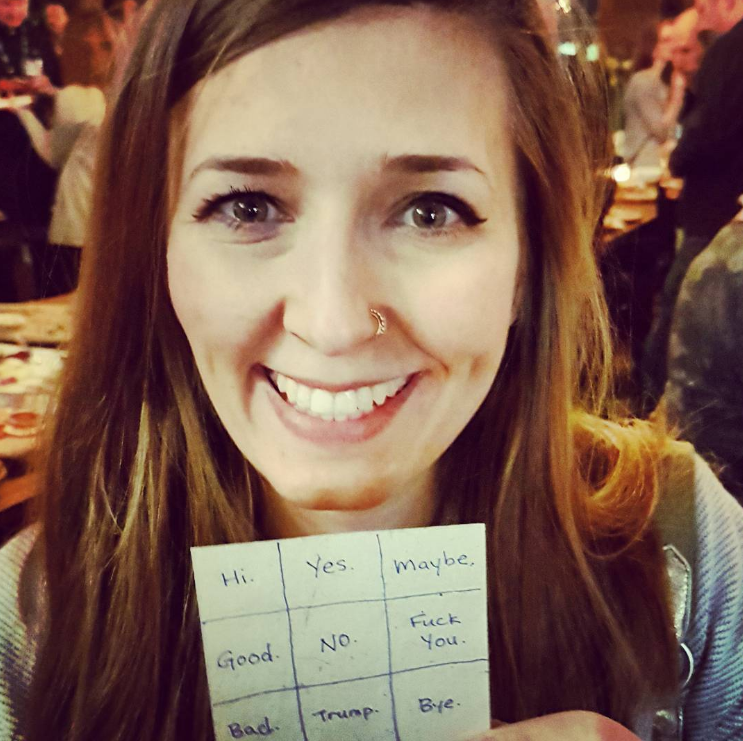 Hi. Yes. Maybe.
Good. NO. Fuck You.
Bad. Trump. Bye.